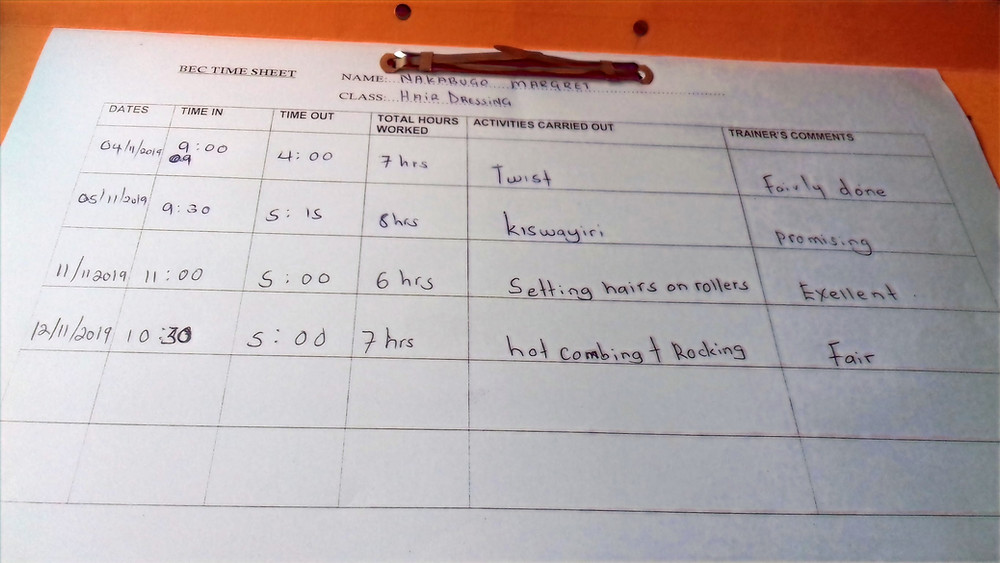 BEC TIME SHEET
NAME: NAKABUGO MARGRET
CLASS: HAIR DRESSING
DATES TIME IN TIME OUT TOTAL HOURS WORKED ACTIVITIES CARRIED OUT TRAINER'S COMMENTS
04/11/2019 9:00 4:00 7 hrs Twist Fairly done
05/11/2019 9:30 5:15 8hrs kiswayiri promising
11/11/2019 11:00 5:00 6 hrs Setting hairs on rollers Exellent.
12/11/2019 10:30 5:00 7 hrs hot combing + Rocking Fair